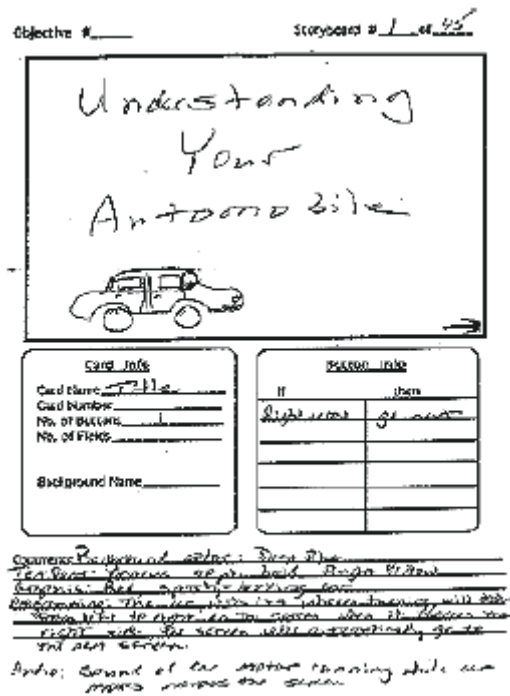 Objective #
Storyboard # 1 of 45
Understanding
Your
Automobile
Card Info
Card Name Title
Card Number
No. of Buttons 1
No. of Fields
Background Name
Button Info
If then
Right arrow go next
Comments: Background color: Deep Blue
Text bold, Bright Yellow
Graphic: Red sporty-looking car
Programming: The car wheels turning will
from left to right on the screen when it the
right side, the screen will automatically go to
the next screen.
Audio: Sound of car motor running while car
moves across the screen